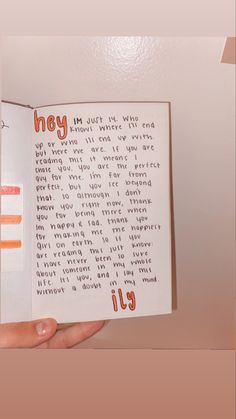 hey IM JUST 14. WHO
KNOWS WHERE I'll END
UP OR WHO I'll END UP WITH.
BUT HERE WE ARE. IF YOU ARE
READING THIS IT MEANS I
CHOSE YOU. YOU ARE THE PERFECT
GUY FOR ME. IM FAR FROM
PERFECT, BUT YOU SEE BEYOND
THAT. SO ALTHOUGH I DONT
KNOW YOU RIGHT NOW, THANK
YOU FOR BEING THERE WHEN
IM HAPPY & SAD. THANK YOU
FOR MAKING ME THE HAPPIEST
GIRL ON EARTH. SO IF YOU
ARE READING THIS JUST KNOW:
I HAVE NEVER BEEN SO SURE
ABOUT SOMEONE IN MY WHOLE
LIFE. IT'S YOU, AND I SAY THIS
WITHOUT A DOUBT IN MY MIND.
ily